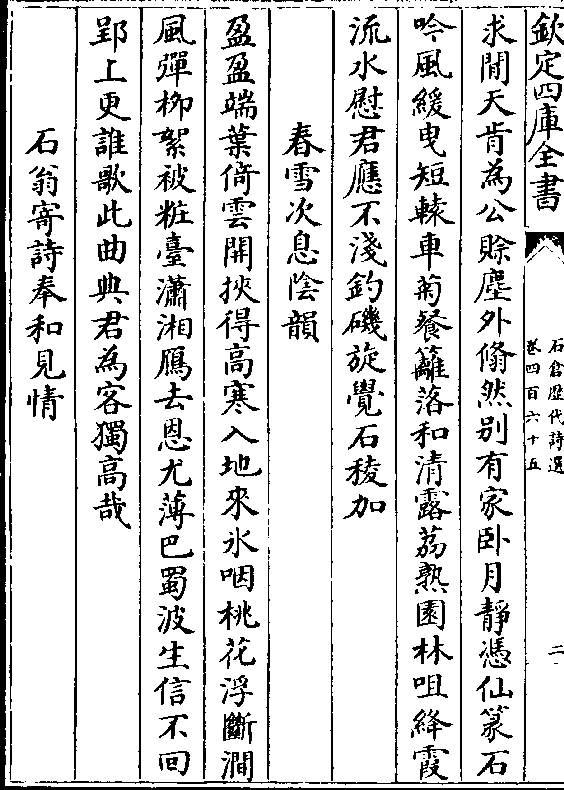 欽定四庫全書
石倉歷代詩選
卷四百六十五
二
求閒天肯為公賒塵外翛然别有家卧月靜慿仙篆石
吟風緩曳短轅車菊餐籬落和清露荔熟園林咀絳霞
流水慰君應不淺釣磯旋覺石稜加
春雪次息陰韻
盈盈端葉倚雲開挾得高寒入地來氷咽桃花浮斷澗
風彈栁絮被粧臺瀟湘鴈去恩尤薄巴蜀波生信不回
郢上更誰歌此曲典君為客獨高哉
石翁寄詩奉和見情